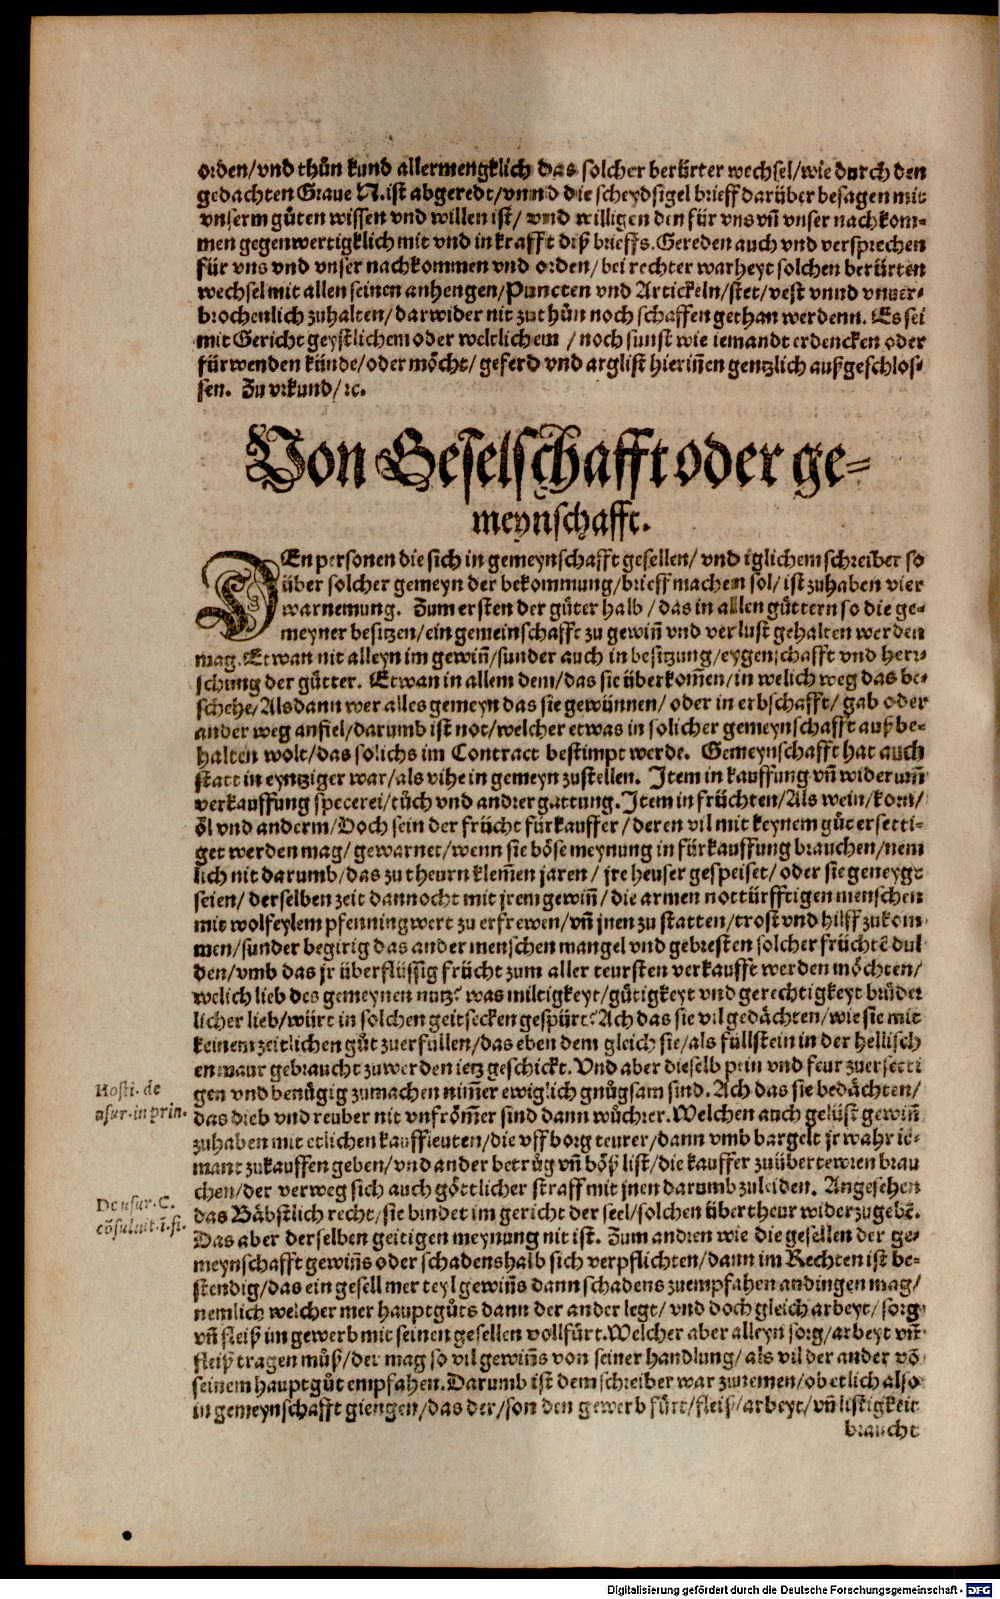 orden/vnd thůn kund allermengklich das solcher berürter wechsel/wie durch den
gedachten Graue N. ist abgeredt/vnnd die scheydsigel brieff darüber besagen mit
vnserm gůten wissen vnd willen ist/ vnd willigen den für vns vñ vnser nachkom⸗
men gegenwertigklich mit vnd in krafft diß brieffs. Gereden auch vnd versprechen
für vns vnd vnser nachkommen vnd orden/ bei rechter warheyt solchen berürten
wechsel mit allen seinen anhengen/Puncten vnd Artickeln/stet/vest vnnd vnuer⸗
brochenlich zuhalten/ darwider nit zuthůn noch schaffen gethan werdenn. Es sei
mit Gericht geystlichem oder weltlichem / noch sunst wie iemandt erdencken oder
fürwenden künde/oder möcht/ geferd vnd arglist hieriñen gentzlich außgeschlos⸗
sen. Zu vrkund/ꝛc.
Von Geselschafft oder ge⸗
meynschafft.
DEn personen die sich in gemeynschafft gesellen/ vnd iglichem schreiber so
über solcher gemeyn der bekommung/brieff machen sol/ ist zuhaben vier
warnemung. Zum ersten der gůter halb / das in allen gůttern so die ge⸗
meyner besitzen/ein gemeinschafft zu gewiñ vnd verlust gehalten werden
mag. Etwan nit alleyn im gewiñ/sunder auch in besitzung/eygenschafft vnd herr⸗
schung der gůtter. Etwan in allem dem/das sie überkom̃en/in welich weg das be⸗
schehe/Als dann wer alles gemeyn das sie gewünnen/ oder in erbschafft/ gab oder
ander weg anfiel/darumb ist not/welcher etwas in solicher gemeynschafft auß be⸗
halten wolt/das solichs im Contract bestimpt werde. Gemeynschafft hat auch
statt in eyntziger war/als vihe in gemeyn zustellen. Item in kauffung vñ widerum̃
verkauffung specerei/tůch vnd andrer gattung. Item in früchten/Als wein/korn/
öl vnd anderm/Doch sein der frücht fürkauffer/deren vil mit keynem gůt ersetti⸗
get werden mag/ gewarnet/wenn sie böse meynung in fürkauffung brauchen/nem
lich nit darumb/das zu theurn klem̃en jaren/ jre heuser gespeiset/ oder sie geneygt
seien/ derselben zeit dannocht mit jrem gewiñ/ die armen nottürfftigen menschen
mit wolfeylem pfenningwert zu erfrewen/vñ jnen zu statten/trost vnd hilff zukom
men/sunder begirig das ander menschen mangel vnd gebresten solcher früchtẽ dul
den/vmb das jr überflüssig frücht zum aller teursten verkaufft werden möchten/
welich lieb des gemeynen nutz? was miltigkeyt/gütigkeyt vnd gerechtigkeyt brůder
licher lieb/würt in solchen geitsecken gespürt? Ach das sie vil gedächten/wie sie mit
keinem zeitlichen gůt zuerfüllen/das eben dem gleich sie/als füllstein in der hellisch
en maur gebraucht zuwerden ietz geschickt. Vnd aber dieselb pein vnd feur zuersetti
gen vnd benügig zumachen nim̃er ewiglich gnůgsam sind. Ach das sie bedächten/
das dieb vnd reuber nit vnfröm̃er sind dann wůchrer. Welchen auch gelüst gewiñ
zuhaben mit etlichen kauffleuten/die vff borg teurer/dann vmb bargelt jr wahr ie⸗
mant zukauffen geben/vnd ander betrůg vñ böß list/die kauffer zuübertewren brau
chen/der verweg sich auch göttlicher straff mit jnen darumb zuleiden. Angesehen
das Bäbstlich recht/sie bindet im gericht der seel/solchen übertheur widerzugebẽ.
Das aber derselben geitigen meynung nit ist. Zum andren wie die gesellen der ge⸗
meynschafft gewiñs oder schadenshalb sich verpflichten/dann im Rechten ist be⸗
stendig/das ein gesell mer teyl gewiñs dann schadens zuempfahen andingen mag/
nemlich welcher mer hauptgůts dann der ander legt/ vnd doch gleich arbeyt/ sorg
vñ fleiß im gewerb mit seinen gesellen vollfürt. Welcher aber alleyn sorg/arbeyt vñ
fleiß tragen můß/der mag so vil gewiñs von seiner handlung/ als vil der ander võ
seinem hauptgůt empfahen. Darumb ist dem schreiber war zunemen/ob etlich also
in gemeynschafft giengen/das der/so den gewerb fürt/fleiß/arbeyt/vñ listigkeit
braucht
Hosti. de
vsur. in prin.
De vsur. C.
cõsuluit. ĩ. fi.
Digitalisierung gefördert durch die Deutsche Forschungsgemeinschaft - DFG